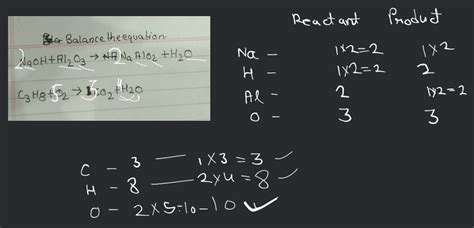 Balance the equation.
2NaOH + Al2O3 → 2NaAlO2 + H2O
C3H8 + 5O2 → 3CO2 + 4H2O
Reactant Product
Na – 1x2=2 1x2
H – 1x2=2 2
Al – 2 1x2=2
O – 3 3
C – 3 — 1x3=3
H – 8 — 2x4=8
O – 2x5=10 – 10 ✓